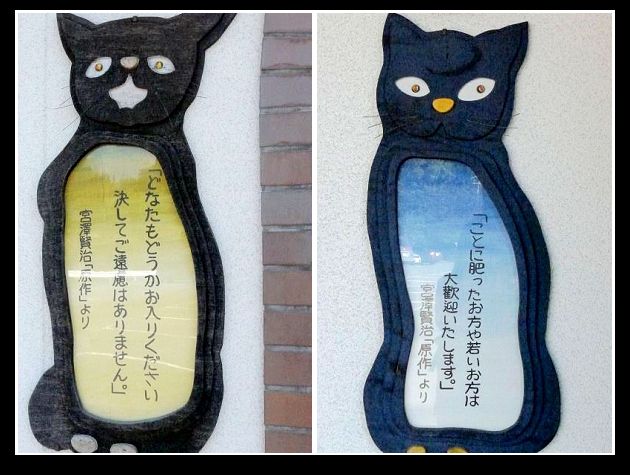 「どなたもどうかお入りください
決してご遠慮はありません。」
宮澤賢治「原作」より
「ことに肥ったお方や若いお方は
大歡迎いたします。」
宮澤賢治「原作」より